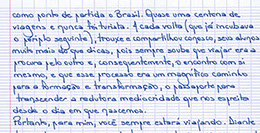 como ponto de partida o Brasil. Quase uma centena de
viagens e nunca foi turista. A cada volta (que já incubava
o périplo seguinte), trouxe e compartilhou conosco, seus alunos
muito mais do que dicas, pois sempre soube que viajar era a
procura pelo outro e, consequentemente, o encontro com si
mesmo, e que esse processo era um magnífico caminho
para a formação e transformação, o passaporte para
transcender a redutora mediocridade que nos espreita
desde o dia em que nascemos.
Portanto, para mim, você sempre estará viajando. Diante